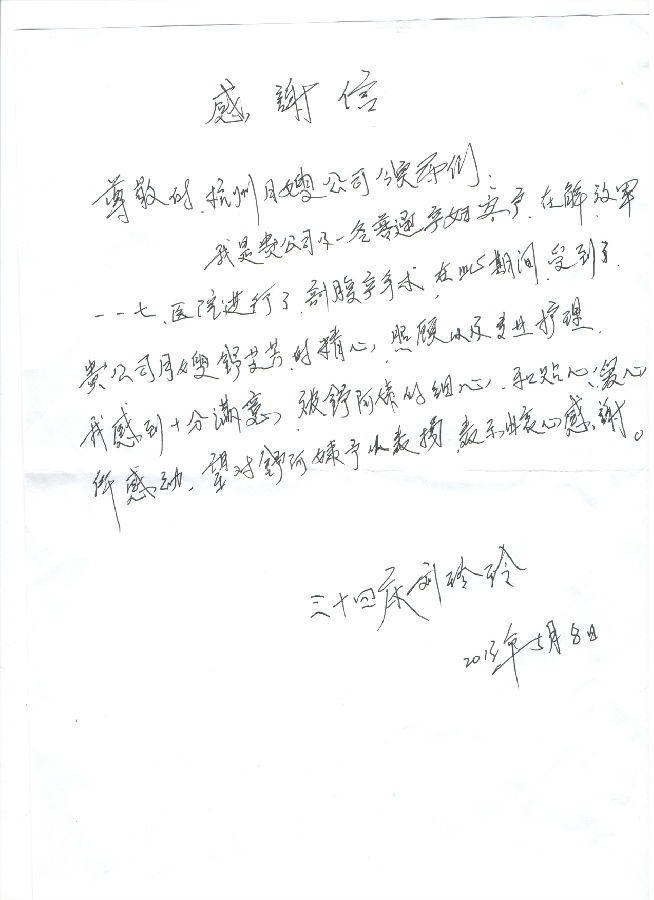 感謝信
尊敬的杭州月嫂公司领导们：
我是贵公司的一名普通孕妇客户，在解放军
一一七医院进行了剖腹产手术，在此期间受到了
贵公司月嫂舒芝芳的精心照顾以及专业护理，
我感到十分满意，被舒阿姨的细心，和贴心、爱心
所感动，望对舒阿姨予以表扬，表示衷心感謝。
三十四床 刘玲玲
2013年5月8日